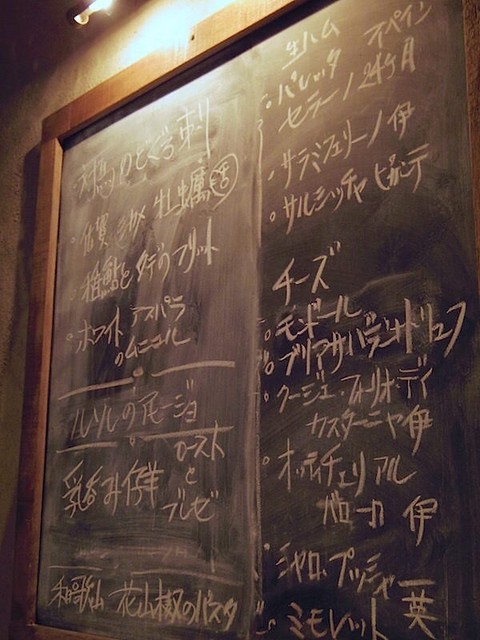 対馬 のどぐろ刺
佐賀 牡蠣 活
稚鮎とタデのフリット
ホワイトアスパラ
のムニエル
のアヒージョ
乳呑み仔羊
ロースト
と
ブレゼ
和歌山 花山椒のパスタ
生ハム スペイン
パレッタ
セラーノ 24ヶ月
サラミフェリーノ 伊
サルシッチャ ピカンテ
チーズ
モンドール
ブリアサバラン
クージェ・フォリオ・ディ
カスターニャ 伊
オッティチェリ アル
バローロ 伊
シャロップッシャー 英
ミモレット